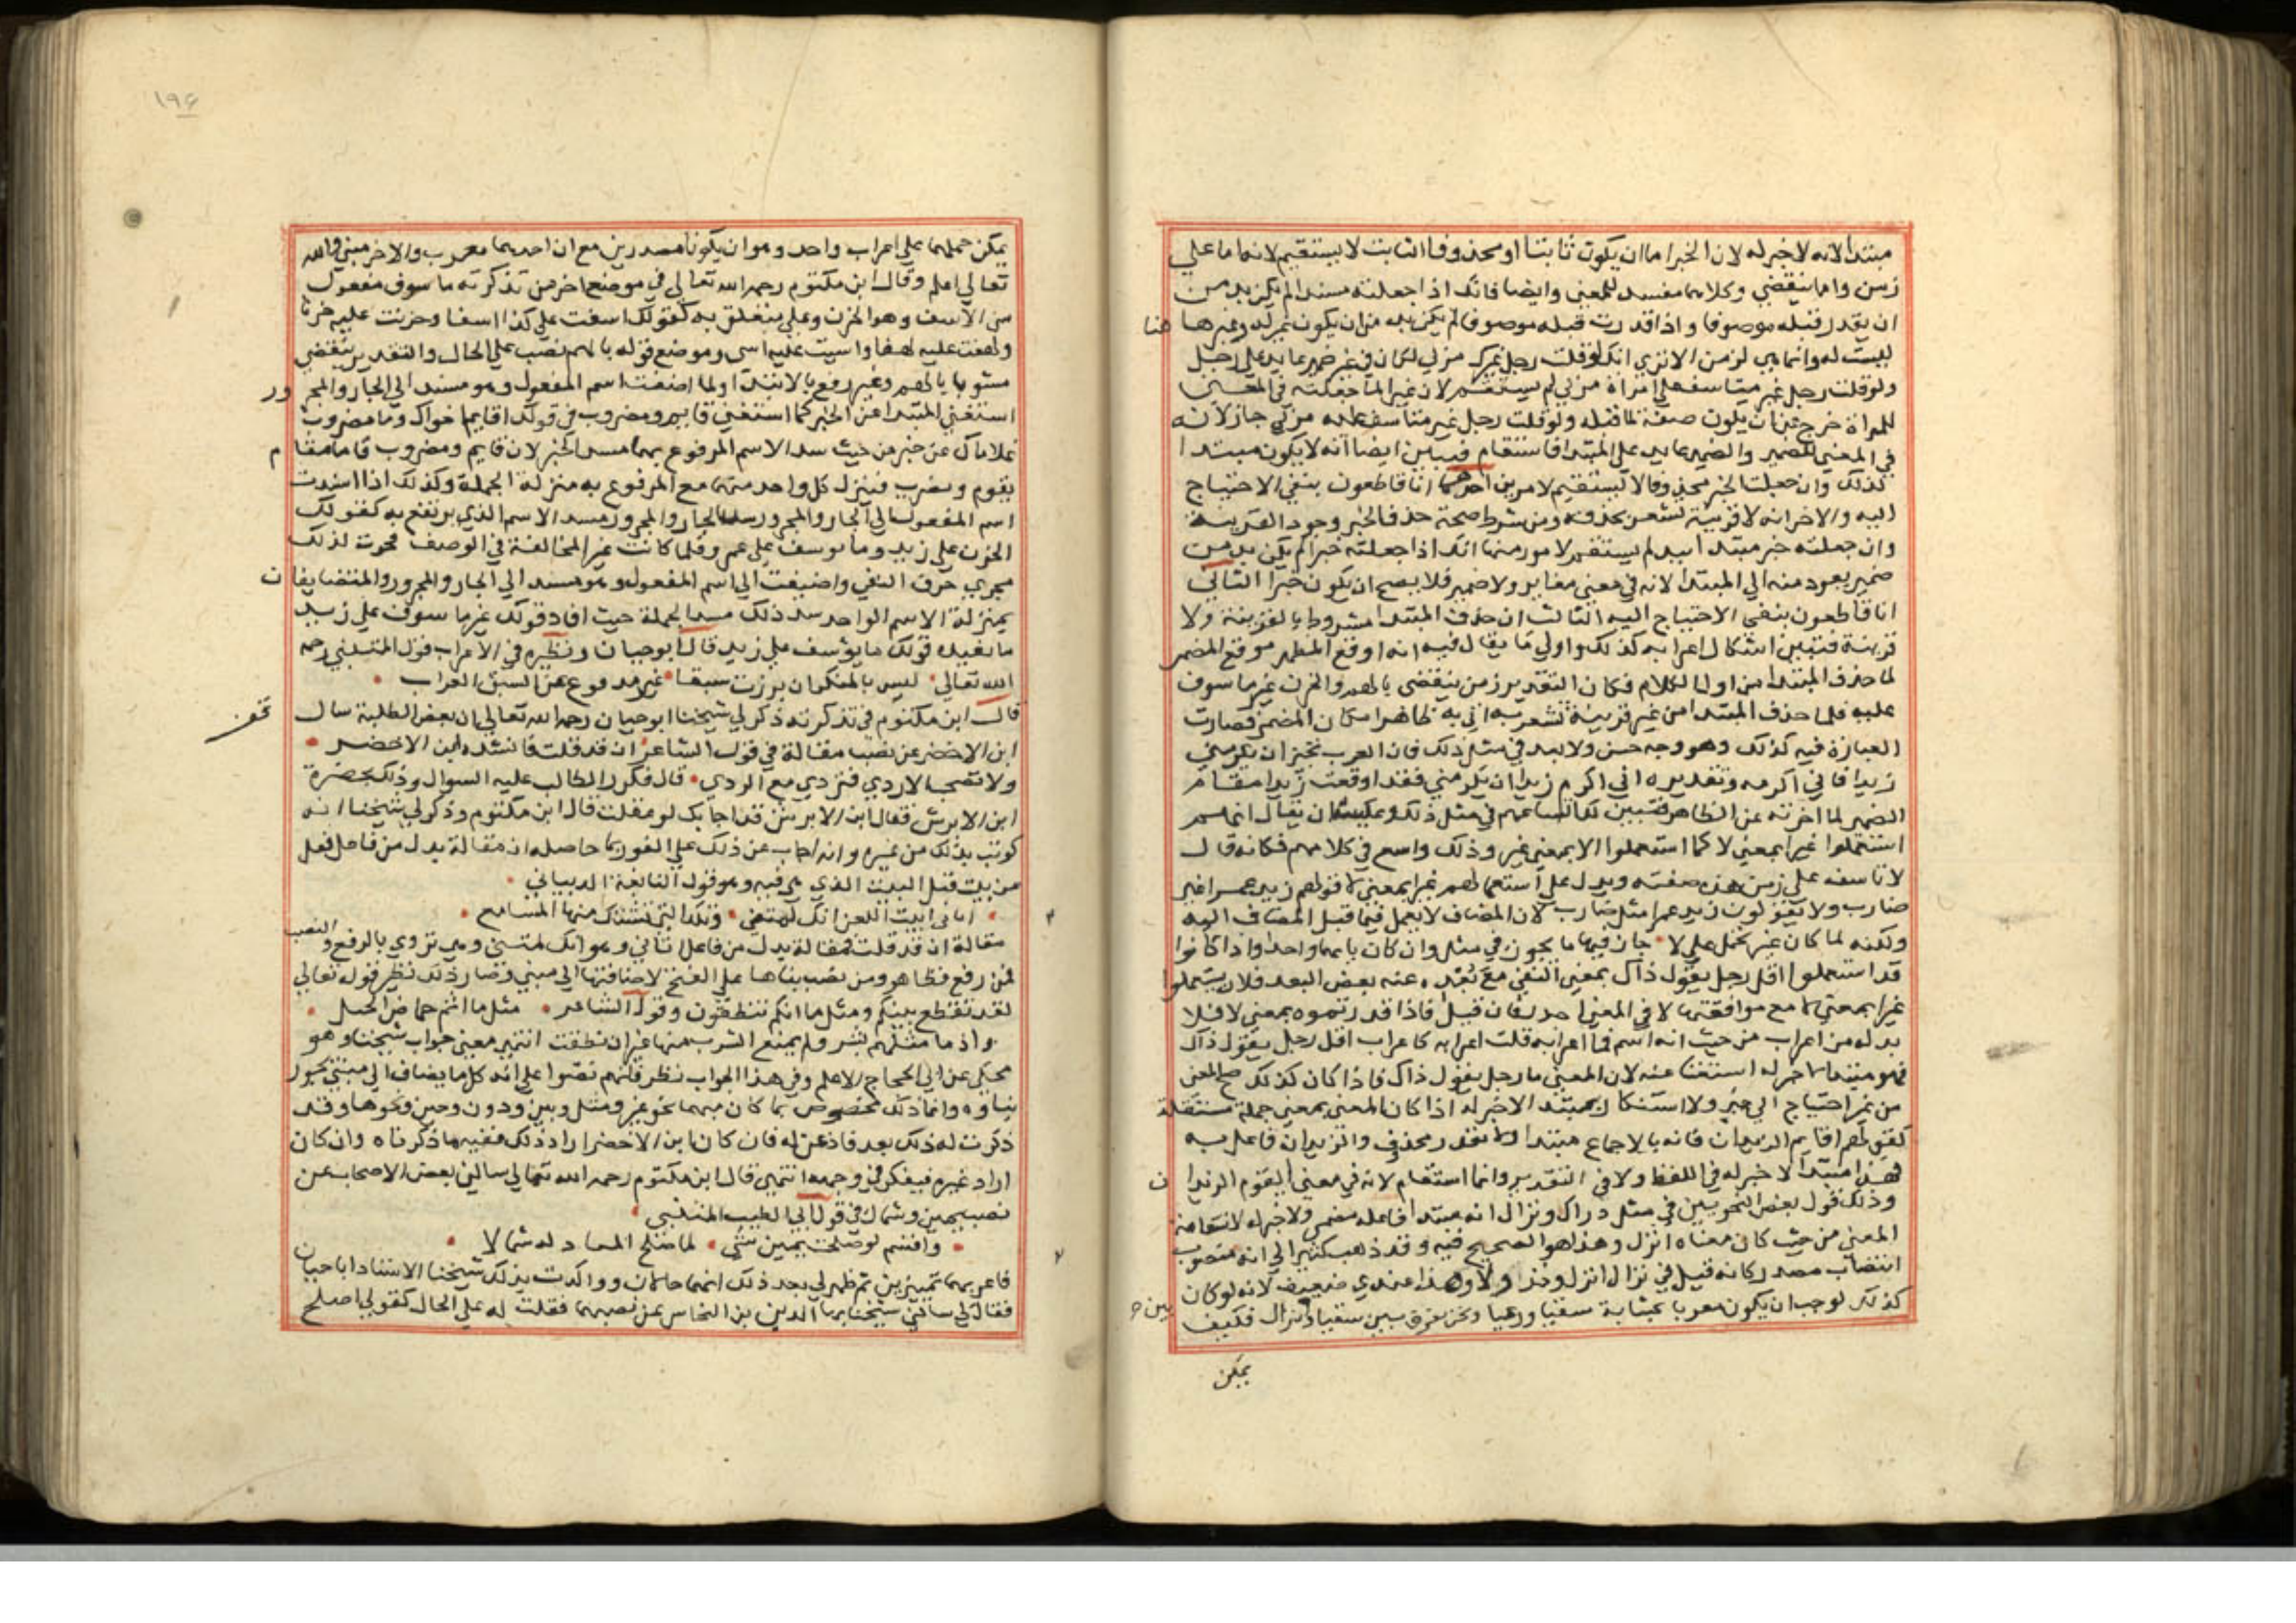 مبتدا لانه لا خبر له لان الخبر اما ان يكون ثابتا او محذوفا الثابت لا يستقيم لانه اما علي
زمن واما ينقضي وكلاهما مفسد للمعني وايضا فانك اذا جعلته مسندا لم يكن بد من
ان يقدر قبله موصوفا واذا قدرت قبله موصوفا لم يكن بد من ان يكون غير له وغير هنا
ليست له وانما هي لزمن الا تري انك لو قلت رجل غيرك مر لي لكان في غير ضمير عايد علي رجل
ولو قلت رجل غير متاسف علي امراة مر بي لم يستقم لان غير لما جعلته في المعني
للمراة خرج عن ان يكون صفة لما قبله ولو قلت رجل غير متاسف عليه مر بي جاز لانه
في المعني للضمير والضمير عايد علي المبتدا فاستقام فتبين ايضا انه لا يكون مبتدا
كذلك وان جعلت الخبر محذوفا لا يستقيم لامرين احدهما انا قاطعون بنفي الاحتياج
اليه والاخر انه لا قرينة تشعر بحذفه ومن شرط صحة حذف الخبر وجود القرينة
وان جعلته خبر مبتدا لم يستقم لامور منها انك اذا جعلته خبرا لم يكن بد من
ضمير يعود منه الي المبتدا لانه في معني مغاير ولا ضمير فلا يصح ان يكون خبرا الثاني
انا قاطعون بنفي الاحتياج اليه الثالث ان حذف المبتدا مشروط بالقرينة ولا
قرينة فتبين اشكال اعرابه كذلك واولي ما يقال فيه انه اوقع المظهر موقع المضمر
لما حذف المبتدا من اول الكلام فكان التقدير زمن ينقضي بالهم والحزن غير ماسوف
عليه فلما حذف المبتدا من غير قرينة تشعر به اتي به ظاهرا مكان المضمر فصارت
العبارة فيه كذلك وهو وجه حسن ولا بعد في مثل ذلك فان العرب تجيز ان يكرمني
زيد افاني اكرمه وتقديره اني اكرم زيدا ان يكرمني فقد اوقعت زيدا مقام
الضمير لما اخرته عن الظاهر فتبين لك اتساعهم في مثل ذلك ويمكن ان يقال انهم
استعملوا غير بمعني لا كما استعملوا الا بمعني غير وذلك واسع في كلامهم فكانه قال
لا تاسف علي زمن هذه صفته ويدل علي استعمالهم غير بمعني لا قولهم زيد عمرا غير
ضارب ولا يقولون زيد عمرا مثل ضارب لان المضاف لا يعمل فيما قبل المضاف اليه
ولكنه لما كان غير تحمل علي لا جاز فيها ما يجوز في مثل وان كان بابهما واحدا واذا كانوا
قد استعملوا اقل رجل يقول ذاك بمعني النفي مع بعده عنه بعض البعد فلان يستعملوا
غير بمعني لا مع موافقتها لا في المعني اجدر فان قيل فاذا قدرتموه بمعني لا فلا
بد له من اعراب من حيث انه اسم فما اعرابه قلت اعرابه كاعراب اقل رجل يقول ذاك
فهو مبتدا لا خبر له استغنا عنه لان المعني ما رجل يقول ذاك فاذا كان كذلك صح المعني
من غير احتياج الي خبر ولا استنكار بمبتدا لا خبر له اذا كان المعني بمعني جملة مستقلة
كقولهم اقايم الزيدان فانه بالاجماع مبتدا ولا مقدر محذوف والزيدان فاعل به
فهذا مبتدا لا خبر له في اللفظ ولا في التقدير وانما استقام لانه في معني ايقوم الزيدان
وذلك قول بعض النحويين في مثل دراك ونزال انه مبتدا فاعله مضمر ولا خبر له لاستقامة
المعني من حيث كان معناه انزل وهذا هو الصحيح فيه وقد ذهب كثير الي انه منصوب
انتصاب مصدر كانه قيل في نزال انزل ونزالا ولا وهذا عندي ضعيف لانه لو كان
كذلك لوجب ان يكون معربا بمثابة سقيا ورعيا ونحن نفرق بين سقيا ونزال فكيف
يمكن
١٩٤
يمكن حملهما علي اعراب واحد وهو ان يكونا مصدرين مع ان احدهما معرب والاخر مبني والله
تعالي اعلم وقال ابن مكتوم رحمه الله تعالي في موضع اخر من تذكرته ماسوف مفعول
من الاسف وهو الحزن وعلي يتعلق به كقولك اسفت علي كذا اسفا وحزنت عليه حزنا
ولهفت عليه لهفا واسيت عليه اسي وموضع قوله بالهم نصب علي الحال والتقدير ينقضي
مشوبا بالهم وغير رفع بالابتدا ولما اضيفت اسم المفعول وهو مسند الي الجار والمجرور
استغني المبتدا عن الخبر كما استغني قايم ومضروب في قولك اقايم اخواك وما مضروب
غلاماك عن خبر من حيث سد الاسم المرفوع بهما مسد الخبر لان قايم ومضروب قاما مقام
يقوم ويضرب فتنزل كل واحد منهما مع المرفوع به منزلة الجملة وكذلك اذا اسندت
اسم المفعول الي الجار والمجرور سد الجار والمجرور مسد الاسم الذي يرتفع به كقولك
احزن علي زيد وما يوسف علي عمرو فلما كانت غير المخالفة في الوصف فجرت لذلك
مجري حرف النفي واضيفت الي اسم المفعول وهو مسند الي الجار والمجرور والمتضايفان
بمنزلة الاسم الواحد سد ذلك مسد الجملة حيث افاد قولك غير ماسوف علي زيد
ما يفيده قولك ما يوسف علي زيد قال ابو حيان ونظيره في الاعراب قول المتنبي رحمه
الله تعالي ليس بالمنكر ان برزت سبقا غير مدفوع عن السبق العراب
قال ابن مكتوم في تذكرته ذكر لي شيخنا ابو حيان رحمه الله تعالي ان بعض الطلبة سال
قف
ابن الاخضر عن نصب مقالة في قول الشاعر ان قد قلت فانشده ابن الاخضر
ولا تصحب الاردي فتردي مع الردي قال فكرر الطالب عليه السوال وذلك بحضرة
ابن الابرش فقال ابن الابرش قد اجابك لو عقلت قال ابن مكتوم وذكر لي شيخنا انه
كوتب بذلك من غيره وانه اجاب عن ذلك علي الفور بما حاصله ان مقالة بدل من فاعل فعل
من بيت قبل البيت الذي هي فيه وهو قول النابغة الذبياني
اتاني ابيت اللعن انك لمتني وتلك التي تستك منها المسامع
مقالة ان قد قلت فمقالة بدل من فاعل اتاني وهو انك لمتني وهي تروي بالرفع والنصب
فمن رفع فظاهر ومن نصب بناها علي الفتح لاضافتها الي مبني وصار ذلك نظير قوله تعالي
لقد تقطع بينكم ومثل ما انكم تنطقون وقول الشاعر مثل ما اثمر حماض الجبل
واذ ما مثلهم بشر ولم يمنع الشرب منها غير ان نطقت انتهي معني جواب شيخنا وهو
محكي عن ابي الحجاج الاعلم وفي هذا الجواب نظر فانهم نصوا علي انه كل ما يضاف الي مبني يجوز
بناوه وانما ذلك مخصوص بما كان مبهما نحو غير ومثل وبين ودون وحين ونحوها وقد
ذكرت له ذلك بعد فاذعن له فان كان ابن الاخضر اراد ذلك ففيه ما ذكرناه وان كان
اراد غيره فيفكر في وجهه انتهي قال ابن مكتوم رحمه الله تعالي سالني بعض الاصحاب عن
نصب يمين وشمال في قول ابي الطيب المتنبي
واقسم لو صلحت يمين شي لما صلح العباد له شمالا
فاعربهما تمييزين ثم ظهر لي بعد ذلك انهما حالان وواكدت بذلك شيخنا الاستاذ ابا حيان
فقال لي سالني شيخنا بها الدين بن النحاس عن نصبهما فقلت له علي الحال كقولي اصلح